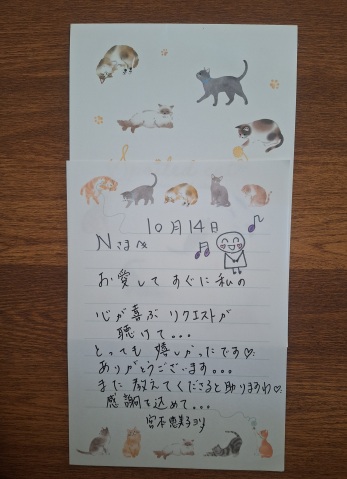 10月14日
Nさまへ
お愛して すぐに私の
心が喜ぶ リクエストが
聴けて...
とっても 嬉しかったです♡
ありがとうございます...
また 教えてくださると助かりますわ♡
感謝を込めて...
宮本 恵美子ヨリ